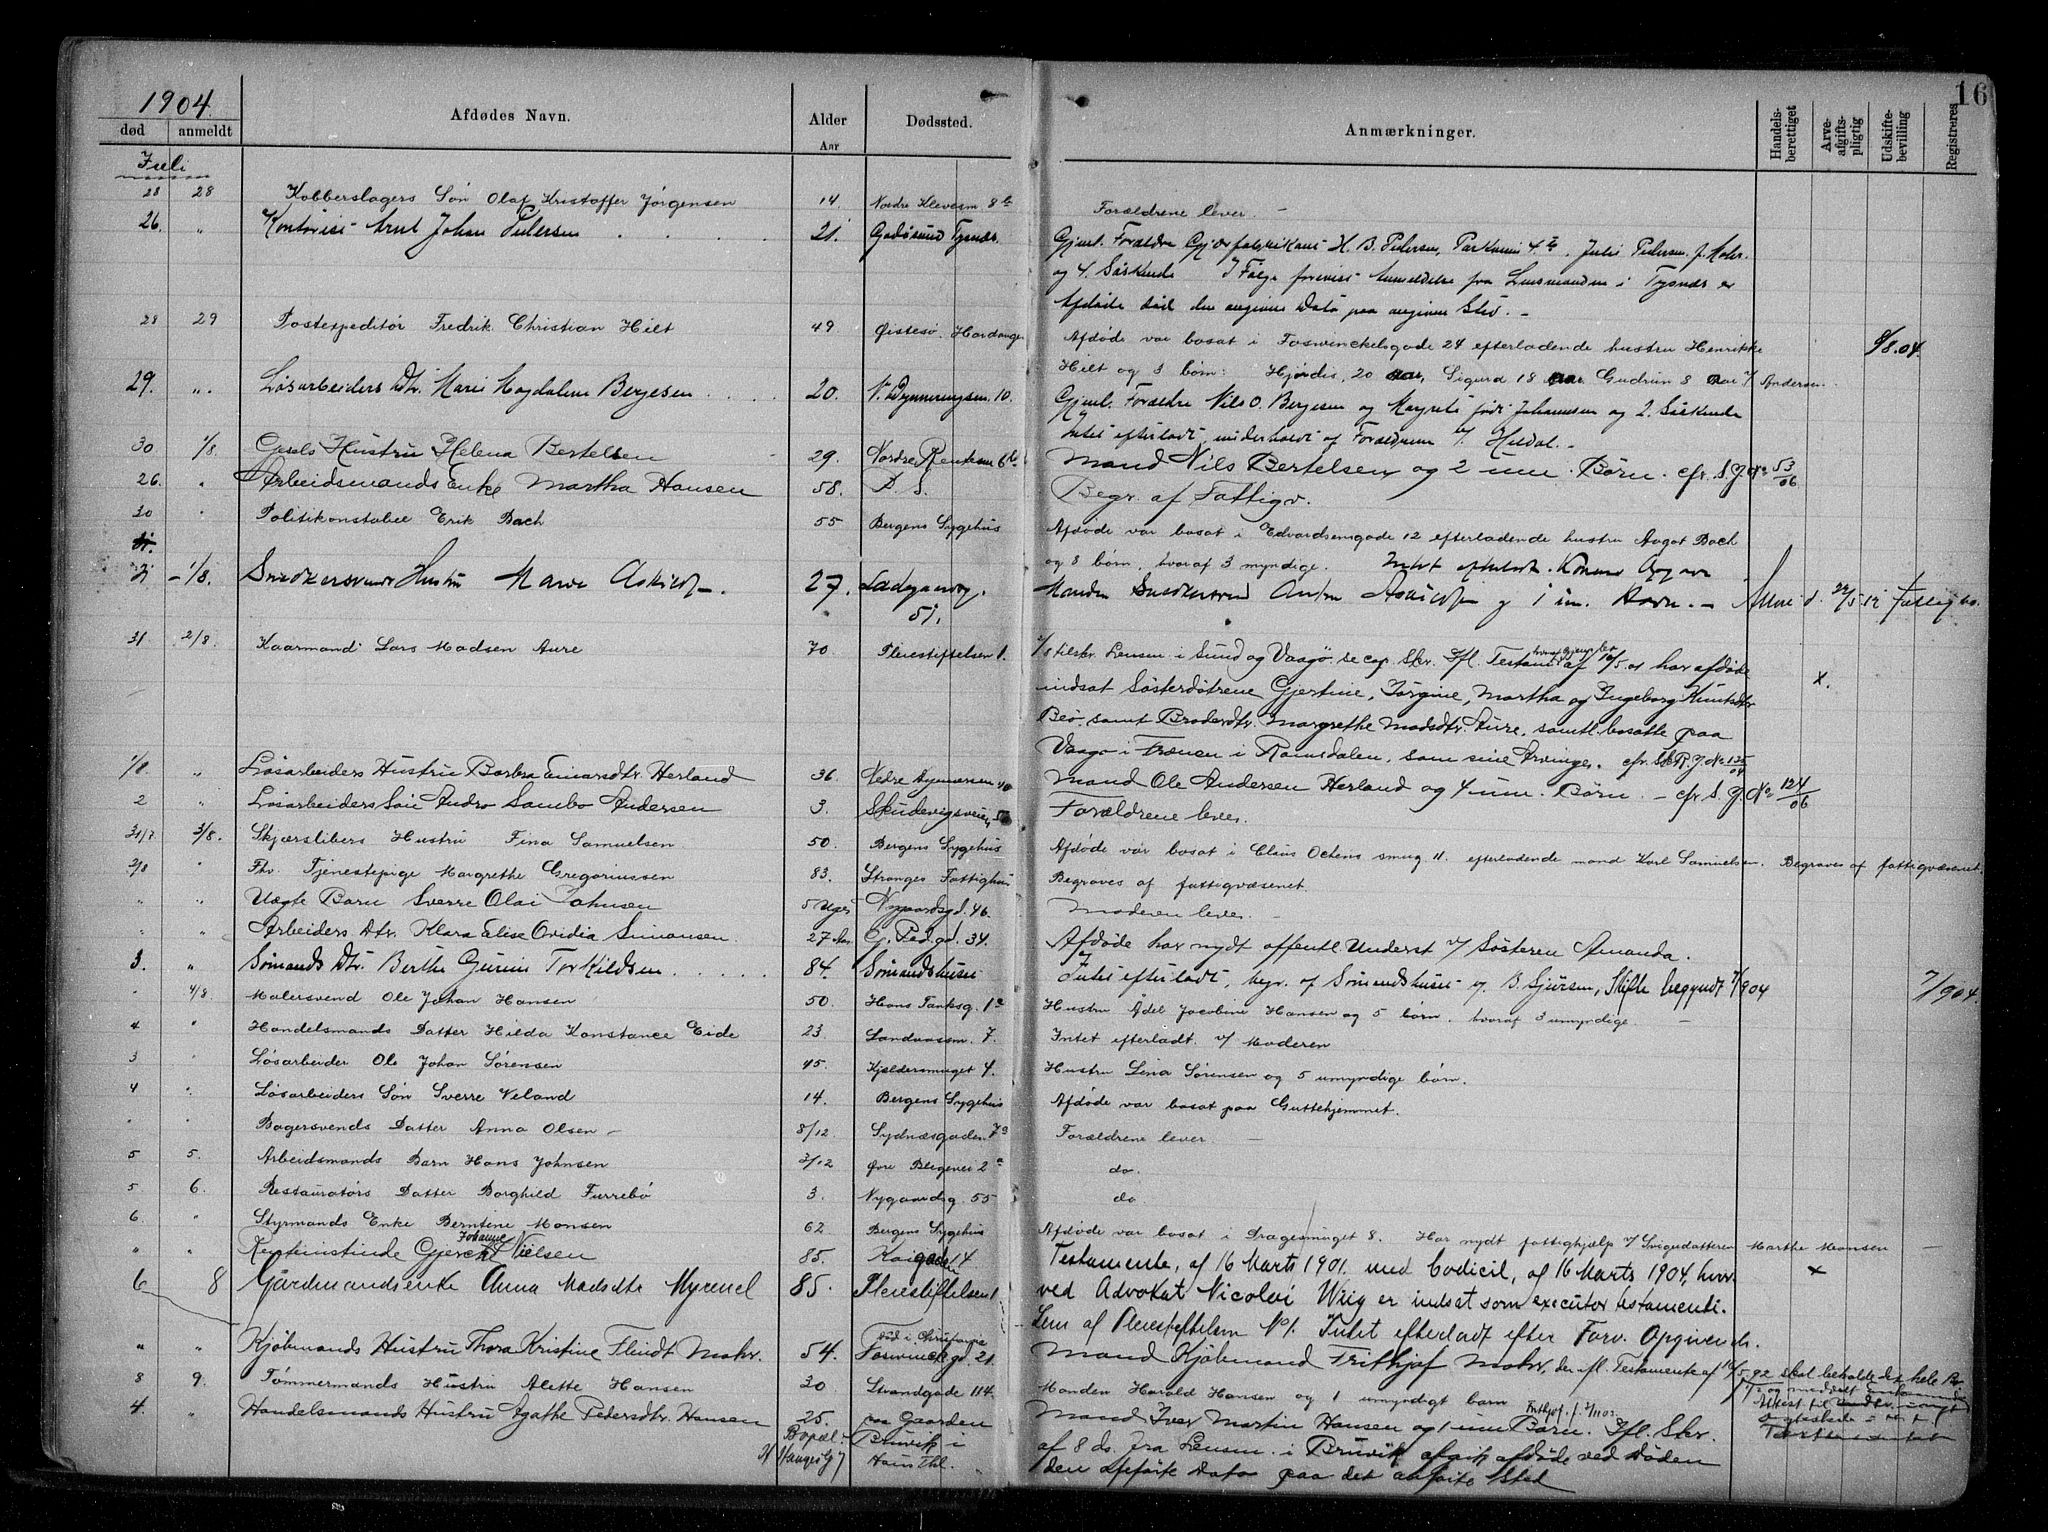 16
1904.
død anmeldt Afdødes Navn. Alder Aar Dødssted. Anmærkninger. Handels-berettiget Arve-afgifts-pligtig Udskifte-bevilling Registreres
Juli
28 28 Kobberslagers Søn Olaf Kristoffer Jørgensen 14. Nordre Klevesm 8 b Forældrene lever. —
26. " Kontorist Arnt Johan Pedersen 21. Godøsund Tysnæs. Gjenl. Forældre H. B. Pedersen, Parkveien 4, Julie Pedersen f. Mohr.
og 4 Søskende I Følge forevist Anmeldelse fra Lensmanden i Tysnæs er
Afdøde død den angivne Dato paa angivne Sted. —
28 29 Postexpeditør Fredrik Christian Hilt 49 Østesø. Hardanger Afdøde var bosat i Foswinckelsgade 24 efterladende hustru Henrikke 9/8.04.
Hilt og 3 børn: Hjørdis, 20 aar, Sigurd 18 aar Gudrun 8 aar v/ Andersen.
29. ". Løsarbeiders Dtr. Marie Magdalene Bergesen 20. Gjenl. Forældre Nils O. Bergesen og Margrete født Johannesen og 2 Søskende
Intet efterladt, underholdt af Forældrene v/ Hildal. —
30 1/8 Carls Hustru Helena Bertelsen 29. Mand Nils Bertelsen og 2 um. Børn. cfr. S. J. No 53/06
26. " Arbeidsmands Enke Martha Hansen 58. P. S. Begr. af Fattigv.
30 " Politikonstabel Erik Bach 55 Bergens Sygehus Afdøde var bosat i Edvardsensgade 12 efterladende hustru Aagot Bach
og 8 børn, hvoraf 3 myndige. Intet efterladt.
31 – 1/8. Snedkersvends Hustru Marie 27. Ladegaardsg. 51. Manden Snedkersvend Anton og 1 um. Barn. —
31 2/8 Kaarmand Lars Madsen Aure 70 Pleiestiftelsen 1. Lensm. i Sund og Vaagø se cop. Skr. Ifl. Testam. af 10/5 01 har afdøde x.
indsat Søsterdøtrene Gjertine, Jørgine, Martha og Ingeborg Knutsdtr
Bø, samt Broderdtr. Margrethe Madsdtr. Aure, samtl. bosatte paa
Vaagø i Frænen i Romsdalen, som sine Arvinger. cfr. S.R.J. No 135/04
1/8. " Løsarbeiders Hustru Barbra Einarsdtr. Herland 36. Nedre 40 Mand Ole Andersen Herland og 4 um. Børn. — cfr S. J. No 124/06
2 " Løsarbeiders Søn Andro Sambo Andersen 3. Skudevigsveien Forældrene lever.
31/7 3/8. Skjærslibers Hustru Fina Samuelsen 50. Bergens Sygehus Afdøde var bosat i Claus Octens smug 11. efterladende mand Karl Samuelsen. Begraves af fattigvæsenet.
2/8 " Fhv. Tjenestepige Margrethe Gregoriussen 83. Stranges Fattighus Begraves af fattigvæsenet.
" " Uægte Barn Sverre Olai Johnsen 5 Uger Nygaardsgd. 46. Moderen lever. —
" " Arbeiders Dtr. Klara Elise Ovidia Simonsen. 27 Aar C. Ped. gd. 34. Afdøde har nydt offentl. Underst v/ Søsteren Amanda.
3. " Sømands Dtr. Berthe Gurine Torkildsen 84. Sømandshuset Intet efterladt, begr. af Sømandshuset v/ B. Sjursen, Skifte begyndt 7/904 7/904.
" 4/8. Malersvend Ole Johan Hansen 50. Hans Tanksg. 1 a Hustru Ådel Jacobine Hansen og 5 børn. hvoraf 3 umyndige.
4 " Handelsmands Datter Hilda Konstance Eide 23 Sandvaasm. 7. Intet efterladt. v/ Moderen
3 " Løsarbeider Ole Johan Sørensen 45. Kjældersmuget 4. Hustru Lina Sørensen og 5 umyndige børn.
4 " Løsarbeiders Søn Sverre Veland 14. Bergens Sygehus Afdøde var bosat paa Guttehjemmet.
" " Bagersvends Datter Anna Olsen – 8/12 Sydnæsgaden 7 Forældrene lever —
5 5. Arbeidsmands Barn Hans Johnsen 3/12 Øvre Blegevei 2 a do.
5 6. Restauratørs Datter Borghild Furrebø 3. Nygaardsg. 55 do
6. " Styrmands Enke Berntine Monsen 62 Bergens Sygehus Afdøde var bosat i Dragesmuget 8. Har nydt fattighjælp v/ Svigerdatteren Marthe Monsen —
" " Rentenistinde Gjerche Johanne Nielsen 85. Kaigaden 4 Testamente, af 16 Marts 1901. med Codicil, af 16 Marts 1904, hvor x
ved Advokat Nicolai Wiig er indsat som executor testamenti.
6 8 Gårdmandsenke Anna Madsdtr Myrmel 85. Pleiestiftelsen 1 Lem af Pleiestiftelsen No 1. Intet efterladt efter Forv. Opgivende.
" " Kjøbmands Hustru Thora Kristine Flindt Mohr. 54. død i Christiania Foswinck gd. 21. Mand Kjøbmand Frithjof Mohr, der ifl. Testamente af 16/5 92 skal beholde det hele Bo
8 9. Tømmermands Hustru Alette Hansen 30 Strandgade 114. Manden Harald Hansen og 1 umyndigt barn
4. " Handelsmands Hustru Agathe Pedersdtr. Hansen 25. paa Gaarden Bruvik i Haus Thl. Mand Iver Martin Hansen og 1 um Barn. Ifl. Skr.
Bopæl: af 8 ds. fra Lensm. i Bruvik afgik afdøde ved Døden
den anførte Dato paa det anførte Sted